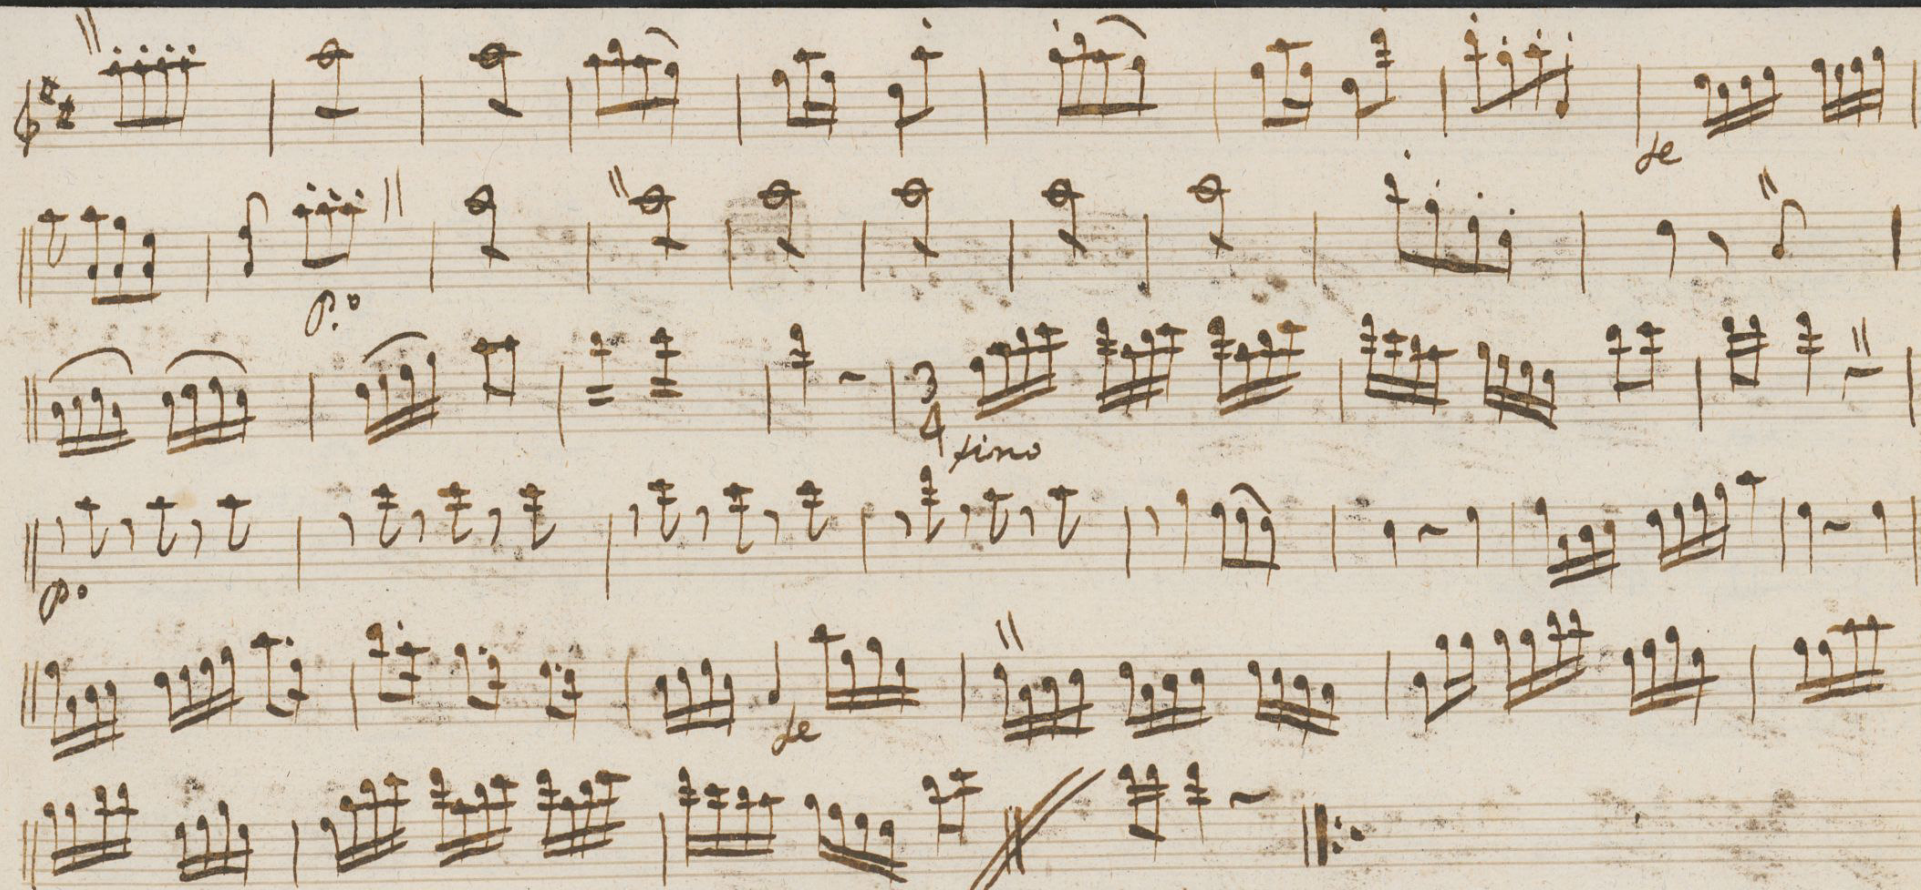 fe
p.º
3
4
fino
p.º
fe